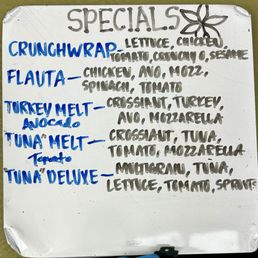 SPECIALS
CRUNCHWRAP - LETTUCE, CHICKEN,
TOMATO, CRUNCHY O, SESAME
FLAUTA - CHICKEN, AVO, MOZZ,
SPINACH, TOMATO
TURKEY MELT - CROSSIANT, TURKEY,
AVOCADO AVO, MOZZARELLA
"TUNA" MELT - CROSSIANT, TUNA,
Tomato TOMATO, MOZZARELLA
"TUNA" DELUXE - MULTIGRAIN, TUNA,
LETTUCE, TOMATO, SPROUTS